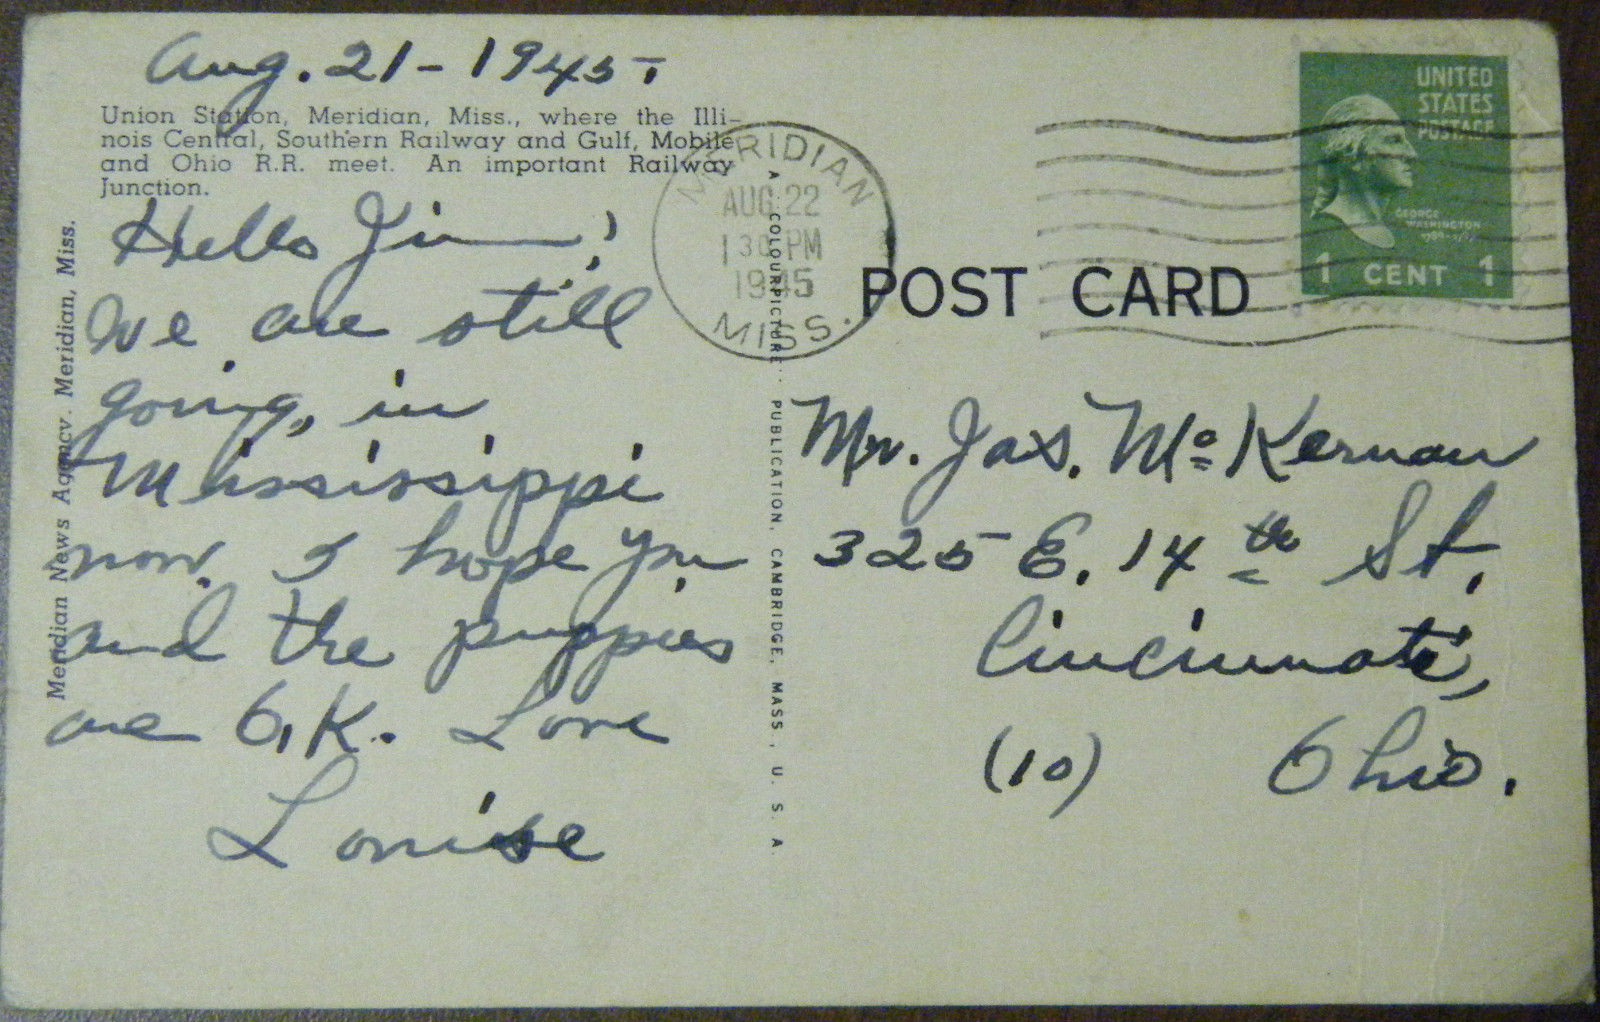 Aug. 21 - 1945.
Union Station, Meridian, Miss., where the Illi-
nois Central, Southern Railway and Gulf, Mobile
and Ohio R.R. meet. An important Railway
Junction.
Hello Jim!
We are still
going, in
Mississippi
now. I hope you
and the puppies
are O.K. Love
Louise
Meridian News Agency. Meridian, Miss.
MERIDIAN
AUG 22
1 30 PM
1945
MISS.
A COLOURPICTURE PUBLICATION, CAMBRIDGE, MASS., U. S. A.
POST CARD
UNITED
STATES
POSTAGE
GEORGE
WASHINGTON
1 CENT 1
Mr. Jas. McKernan
325 E. 14th St.
Cincinnati,
(10) Ohio.